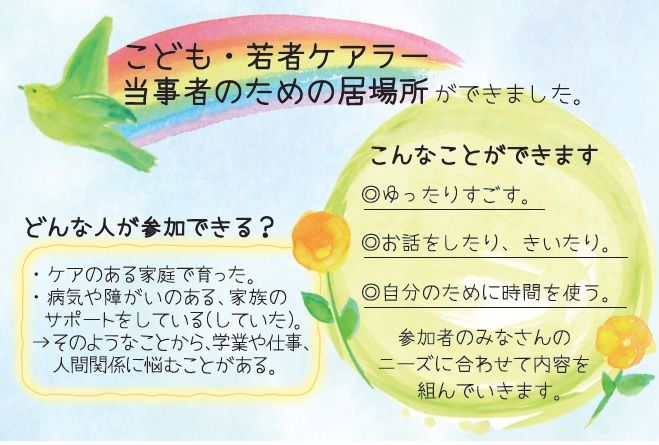 こども・若者ケアラー
当事者のための居場所ができました。
どんな人が参加できる？
・ケアのある家庭で育った。
・病気や障がいのある、家族の
サポートをしている(していた)。
→そのようなことから、学業や仕事、
人間関係に悩むことがある。
こんなことができます
◎ゆったりすごす。
◎お話をしたり、きいたり。
◎自分のために時間を使う。
参加者のみなさんの
ニーズに合わせて内容を
組んでいきます。